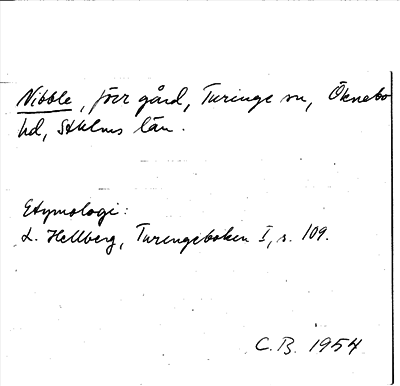 Nibble, förr gård, Turinge sn, Öknebo
hd, Sthlms län.
Etymologi:
L. Hellberg, Turingeboken I, s. 109.
C.B. 1954